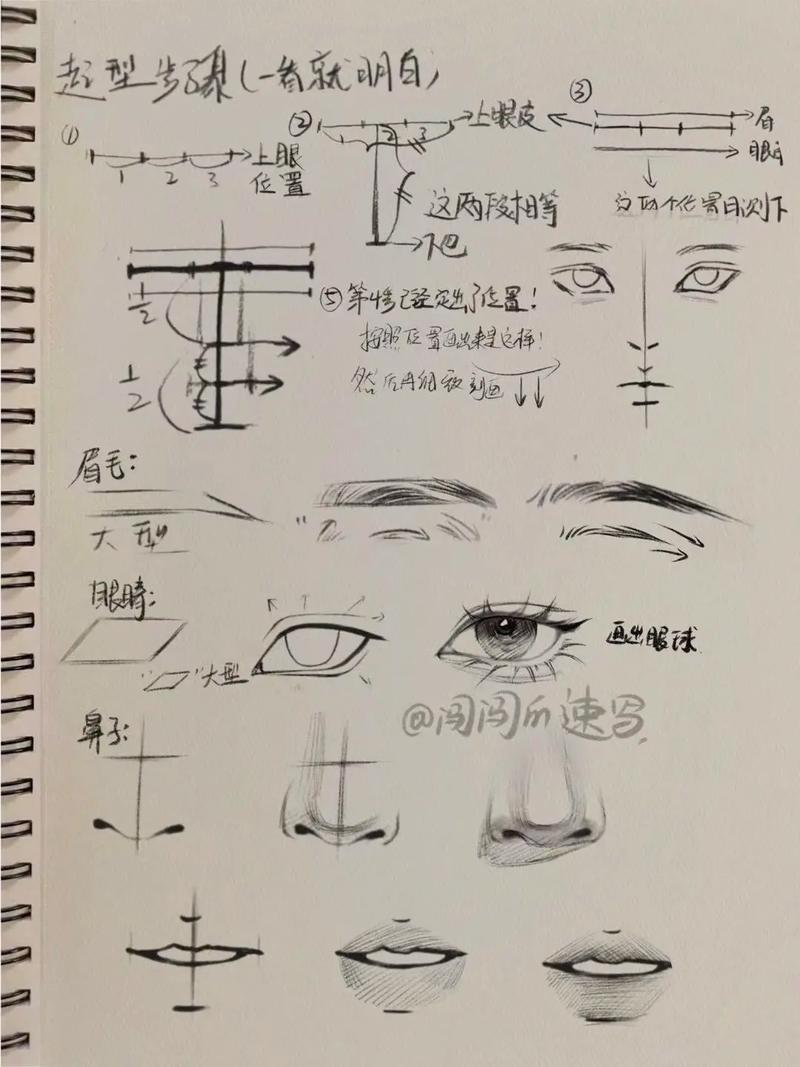 起型步骤(一看就明白)
①
1 2 3
上眼
位置
②
1 2 3
上眼皮
这两段相等
下巴
③
眉
眼
1/2
1/2
⑤等于已经定出了位置!
按照位置画出来是这样!
然后再细致刻画
眉毛:
大型
眼睛:
"大型
画出眼球
@闯闯的速写
鼻子: